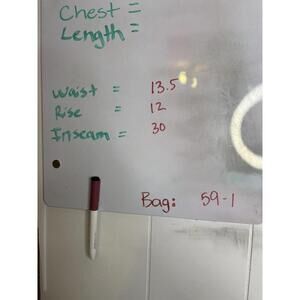 Chest =
Length =
Waist = 13.5
Rise = 12
Inseam = 30
Bag: 59-1